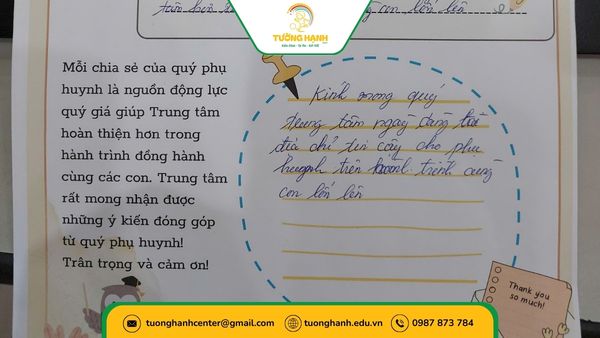 TƯỜNG HẠNH
con lớn lên
Mỗi chia sẻ của quý phụ
huynh là nguồn động lực
quý giá giúp Trung tâm
hoàn thiện hơn trong
hành trình đồng hành
cùng các con. Trung tâm
rất mong nhận được
những ý kiến đóng góp
từ quý phụ huynh!
Trân trọng và cảm ơn!
Kính mong quý
trung tâm ngày càng là
địa chỉ tin cậy cho phụ
huynh trên hành trình cùng
con lớn lên
Thank you
so much!
tuonghanhcenter@gmail.com
tuonghanh.edu.vn
0987 873 784